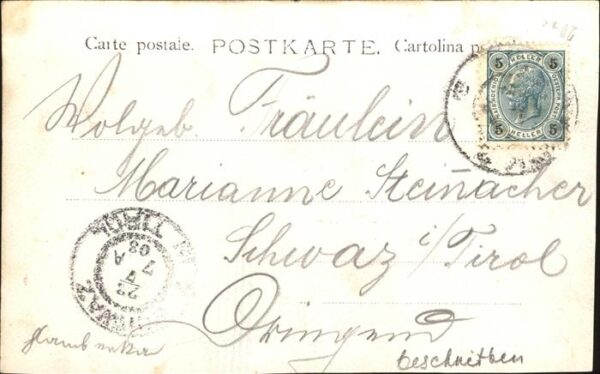 Carte postale. POSTKARTE. Cartolina
5 HELLER 5
5 HELLER 5
Wolgeb. Fräulein
Marianne Steinacher
Schwaz i/Tirol
Dringend
TIROL
22
7
03 A
beschreiben